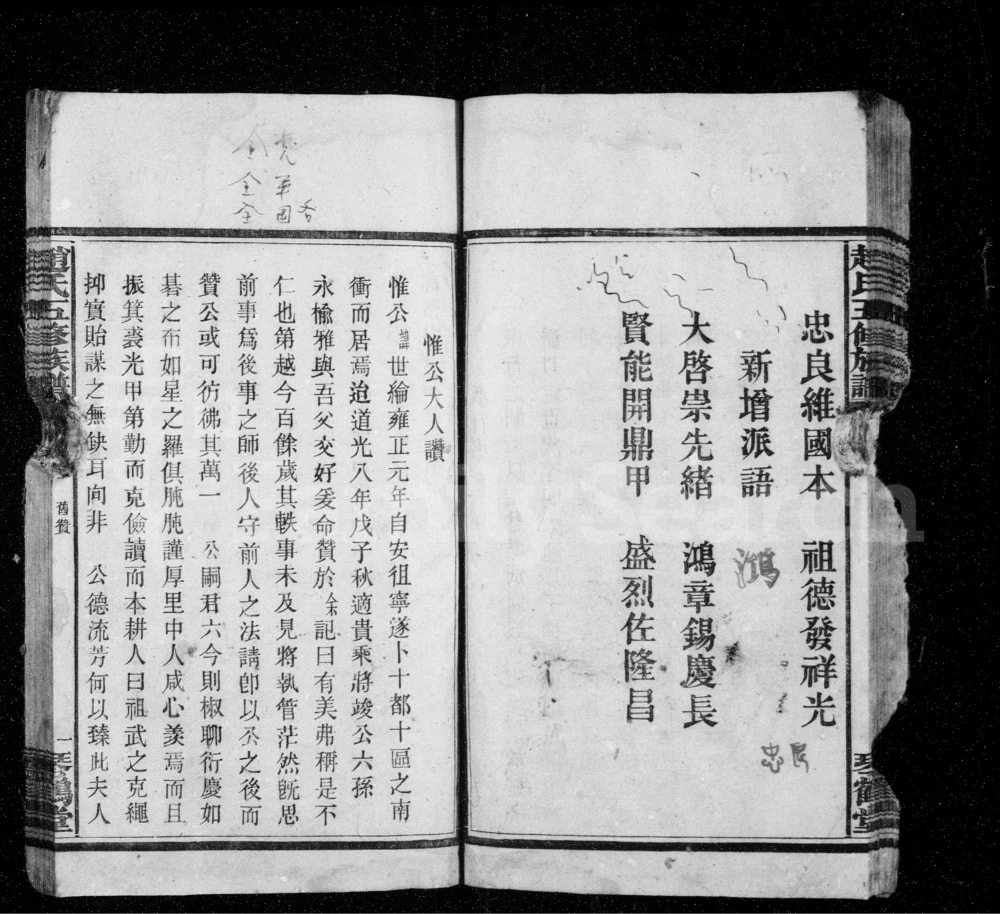 趙氏五修族譜
琴鶴堂
忠良維國本　祖德發祥光
新增派語
大啓崇先緒　鴻章錫慶長
賢能開鼎甲　盛烈佐隆昌
鴻
忠良
惟公大人讚
惟公諱世綸雍正元年自安徂寧遂卜十都十區之南
衝而居焉迨道光八年戊子秋適貴乘將竣公六孫
永榆雅與吾父交好爰命贊於余記曰有美弗稱是不
仁也第越今百餘歲其軼事未及見將執管茫然旣思
前事爲後事之師後人守前人之法請卽以公之後而
贊公或可彷彿其萬一　公嗣君六今則椒聊衍慶如
碁之布如星之羅俱肫肫謹厚里中人咸心羨焉而且
振箕裘光甲第勤而克儉讀而本耕人曰祖武之克繩
抑實貽謀之無缺耳向非　公德流芳何以臻此夫人
趙氏五修族譜
舊贊
一
琴鶴堂
全
全
全
FamilySearch